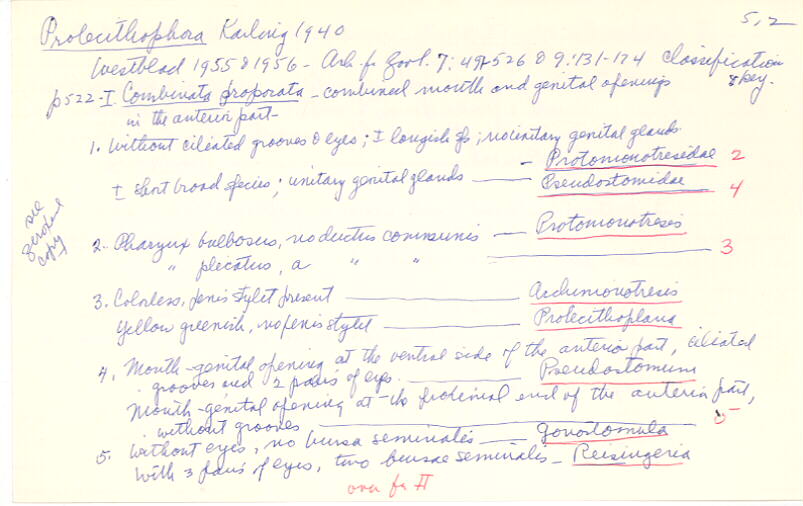 5,2
Prolecithophora Karling 1940
Westblad 1955 & 1956 - Ark. f. Zool. 7: 49-526 & 9: 131-174 classification & key.
p 522 - I Combinata proporata - combined mouth and genital openings
in the anterior part -
1. Without ciliated grooves & eyes; ± longish sp; no unitary genital glands
- Protomonotresidae 2
± short broad species; unitary genital glands — Pseudostomidae 4
see xeroxed copy
2. Pharynx bulbosus, no ductus communis — Protomonotresis
" plicatus, a " " — 3
3. Colorless, penis stylet present — Archimonotresis
Yellow greenish, no penis stylet — Prolecithoplana
4. Mouth-genital opening at the ventral side of the anterior part, ciliated
grooves and 2 pairs of eyes — Pseudostomum
Mouth-genital opening at the proximal end of the anterior part,
without grooves — 5
5. Without eyes, no bursa seminalis — Gonostomula
With 3 pairs of eyes, two bursae seminalis - Reisingeria
over for II